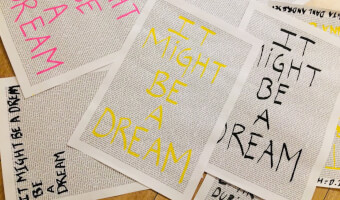 A
DREAM
IT
MIGHT
BE
A
DREAM
IT
MIGHT
BE
A
DREAM
IT MIGHT BE A DREM
BE
A
DREAM